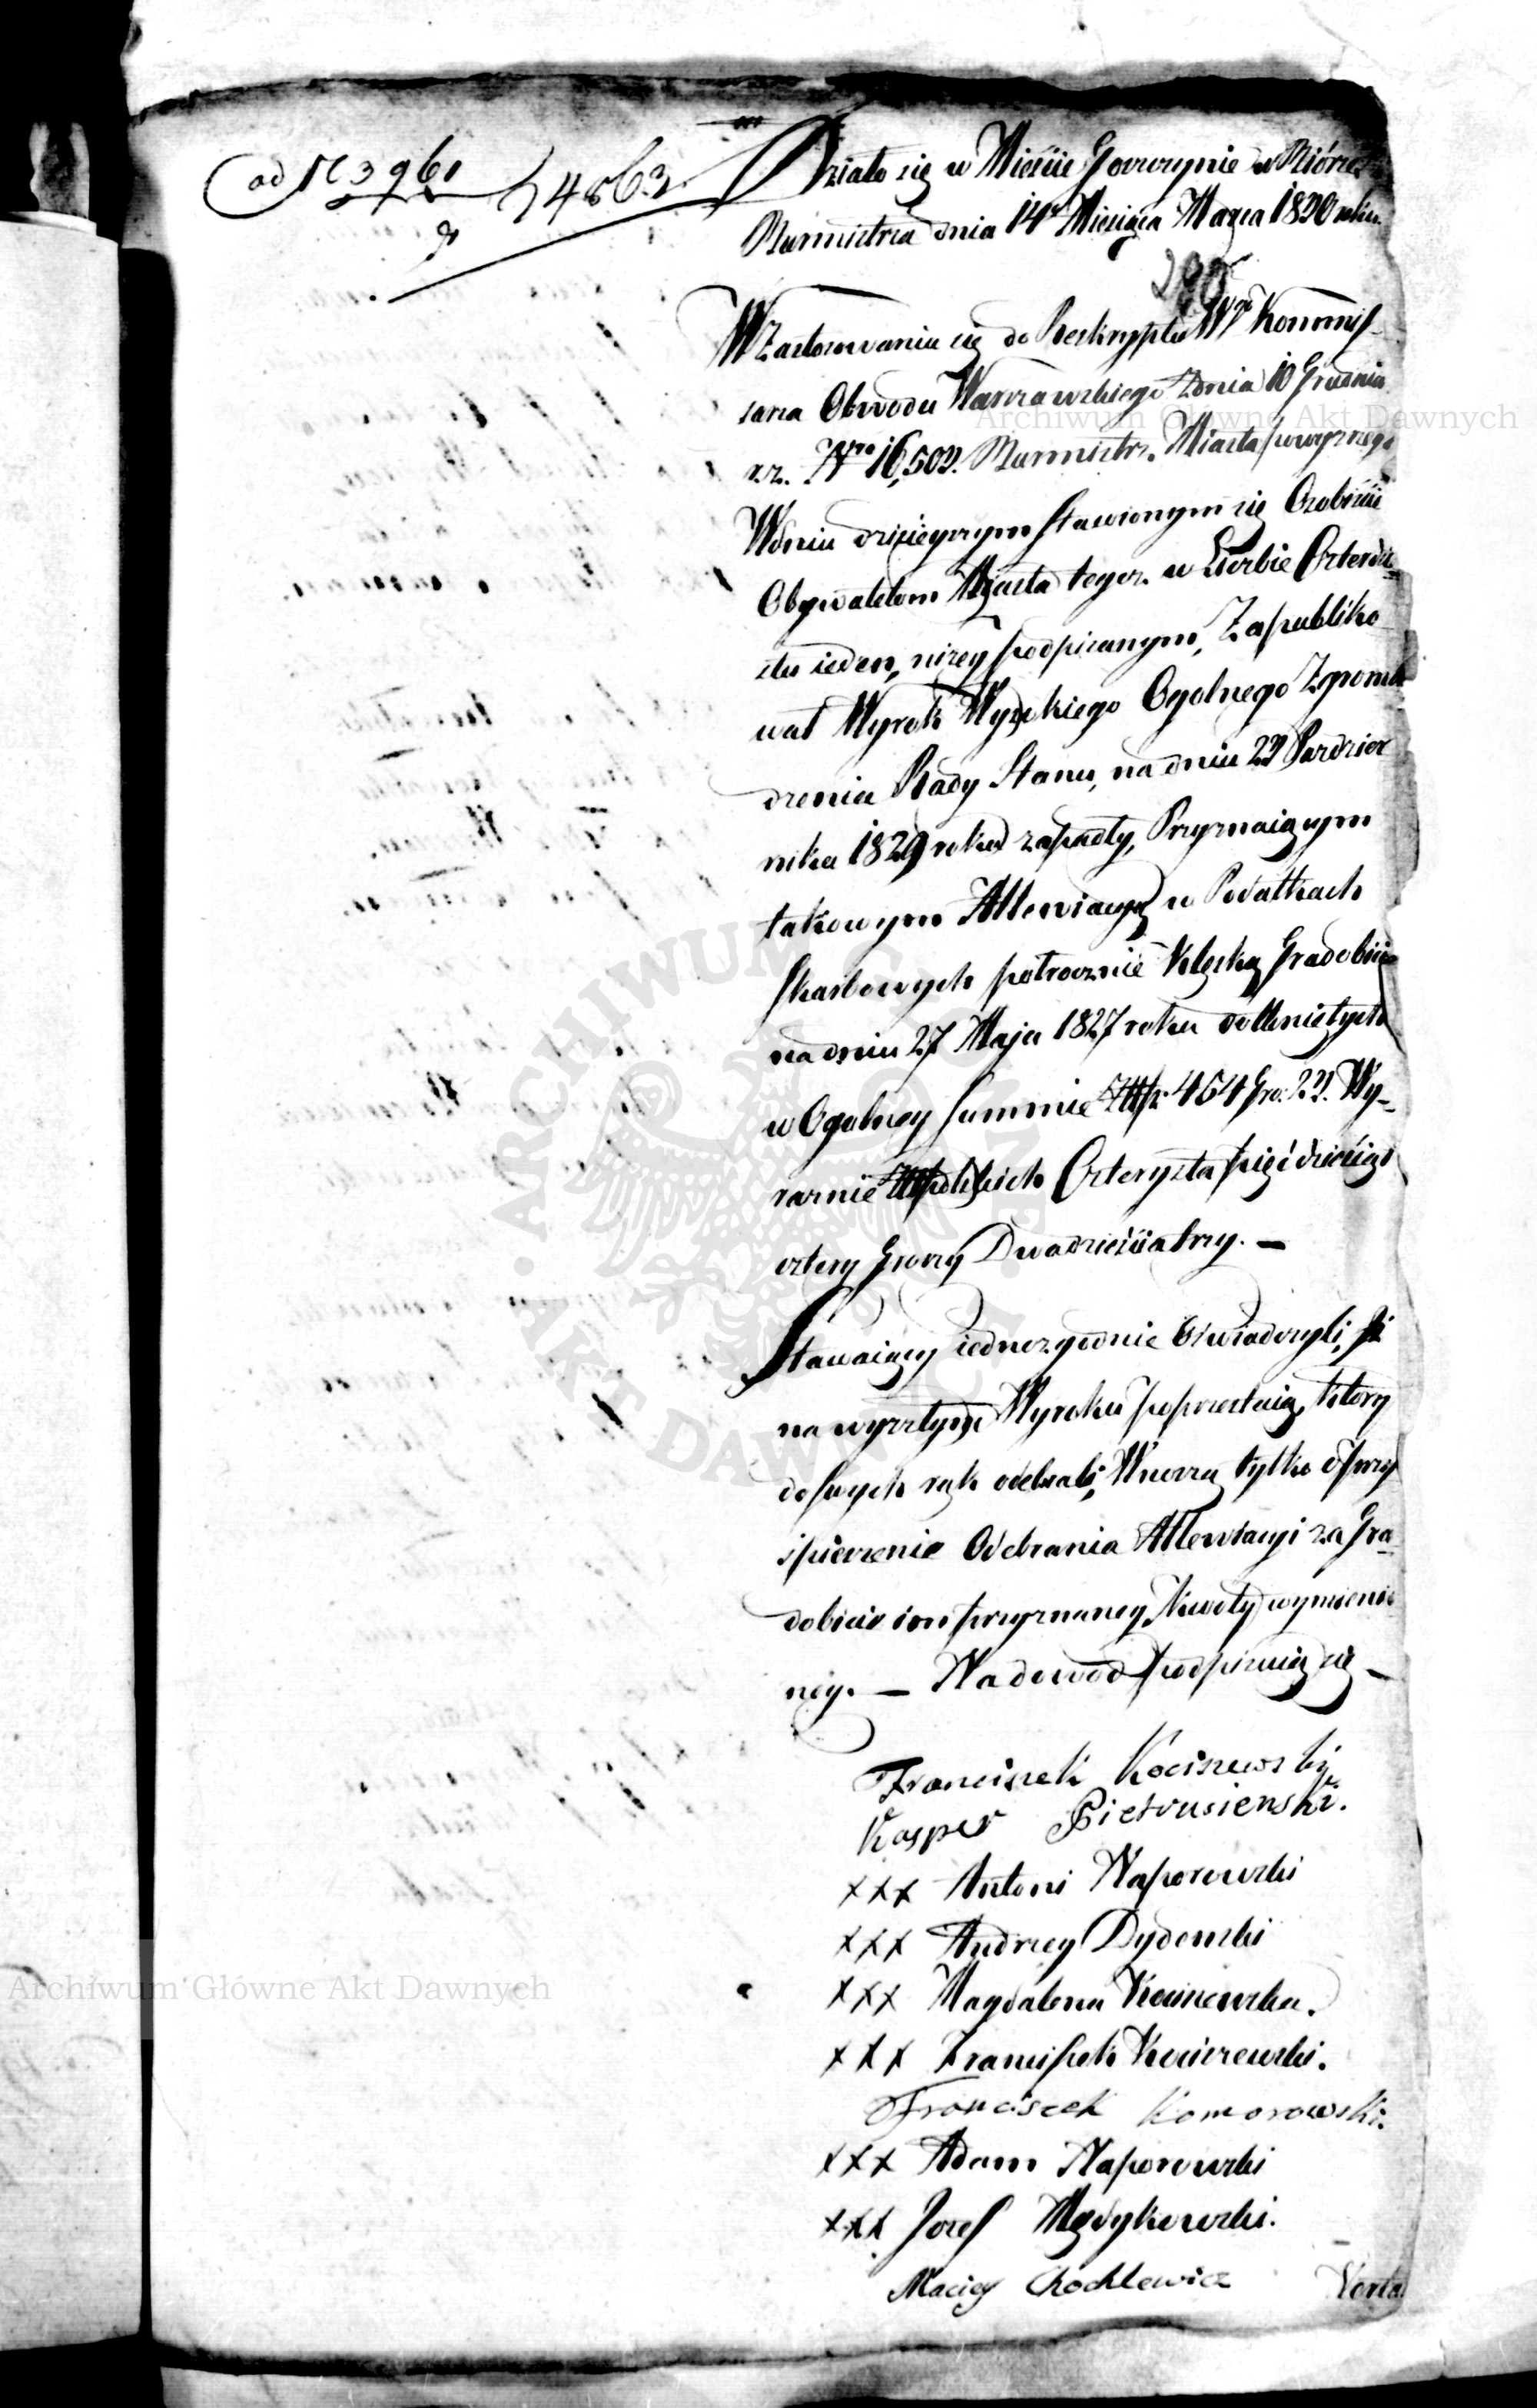 ad N 3961 24863
Działo się w Mieście Goszczynie w Biórze
Burmistrza dnia 14º Miesiąca Marca 1830 roku.
W Zastosowaniu się do Reskryptu Wgo Kommis-
sarza Obwodu Warszawskiego Zdnia 10 Grudnia
r.z. Nro 16,502. Burmistrz Miasta powyższego
Wdniu dzisieyszym stawionym się Osobiście
Obywatelom Miasta tegoż w Liczbie Czterdzie-
stu ieden, niżey podpisanym, Zapubliko-
wał Wyrok Wysokiego Ogolnego Zgroma
dzenia Rady Stanu, na dniu 22 Pazdzier
nika 1829 roku zapadły, Przyznaiącym
takowym Allewiacyą w Podatkach
Skarbowych potrocznie klęską Gradobicia
na dniu 27 Maja 1827 roku dotkniętych
w Ogolney Summie Złłp: 454 gro: 23. Wy-
raznie Złłpolskich Czterysta pięćdziesiąt
cztery Groszy Dwadzieściatrzy. —
Stawaiący iednozgodnie Oświadczyli, Iż
na wyższtym Wyroku poprzestaią, ktory
do swych rąk odebrali, Wnoszą tylko o przy
spieszenie Odebrania Allewiacyi za Gra-
dobicie im przyznaney, Kwoty wymienio
ney. — Na dowod podpisuią się —
Franciszek Kociszewski
Kasper Pietrusienski.
xxx Antoni Naporowski
xxx Andrzey Dydomski
xxx Magdalena Kociszewska.
xxx Franciszek Kociszewski.
Franciszek Komorowski.
xxx Adam Naporowski
xxx Jozef Mędykowski.
Maciey Chochlewicz Verta
Archiwum Główne Akt Dawnych
Archiwum Główne Akt Dawnych
ARCHIWUM GŁÓWNE AKT DAWNYCH